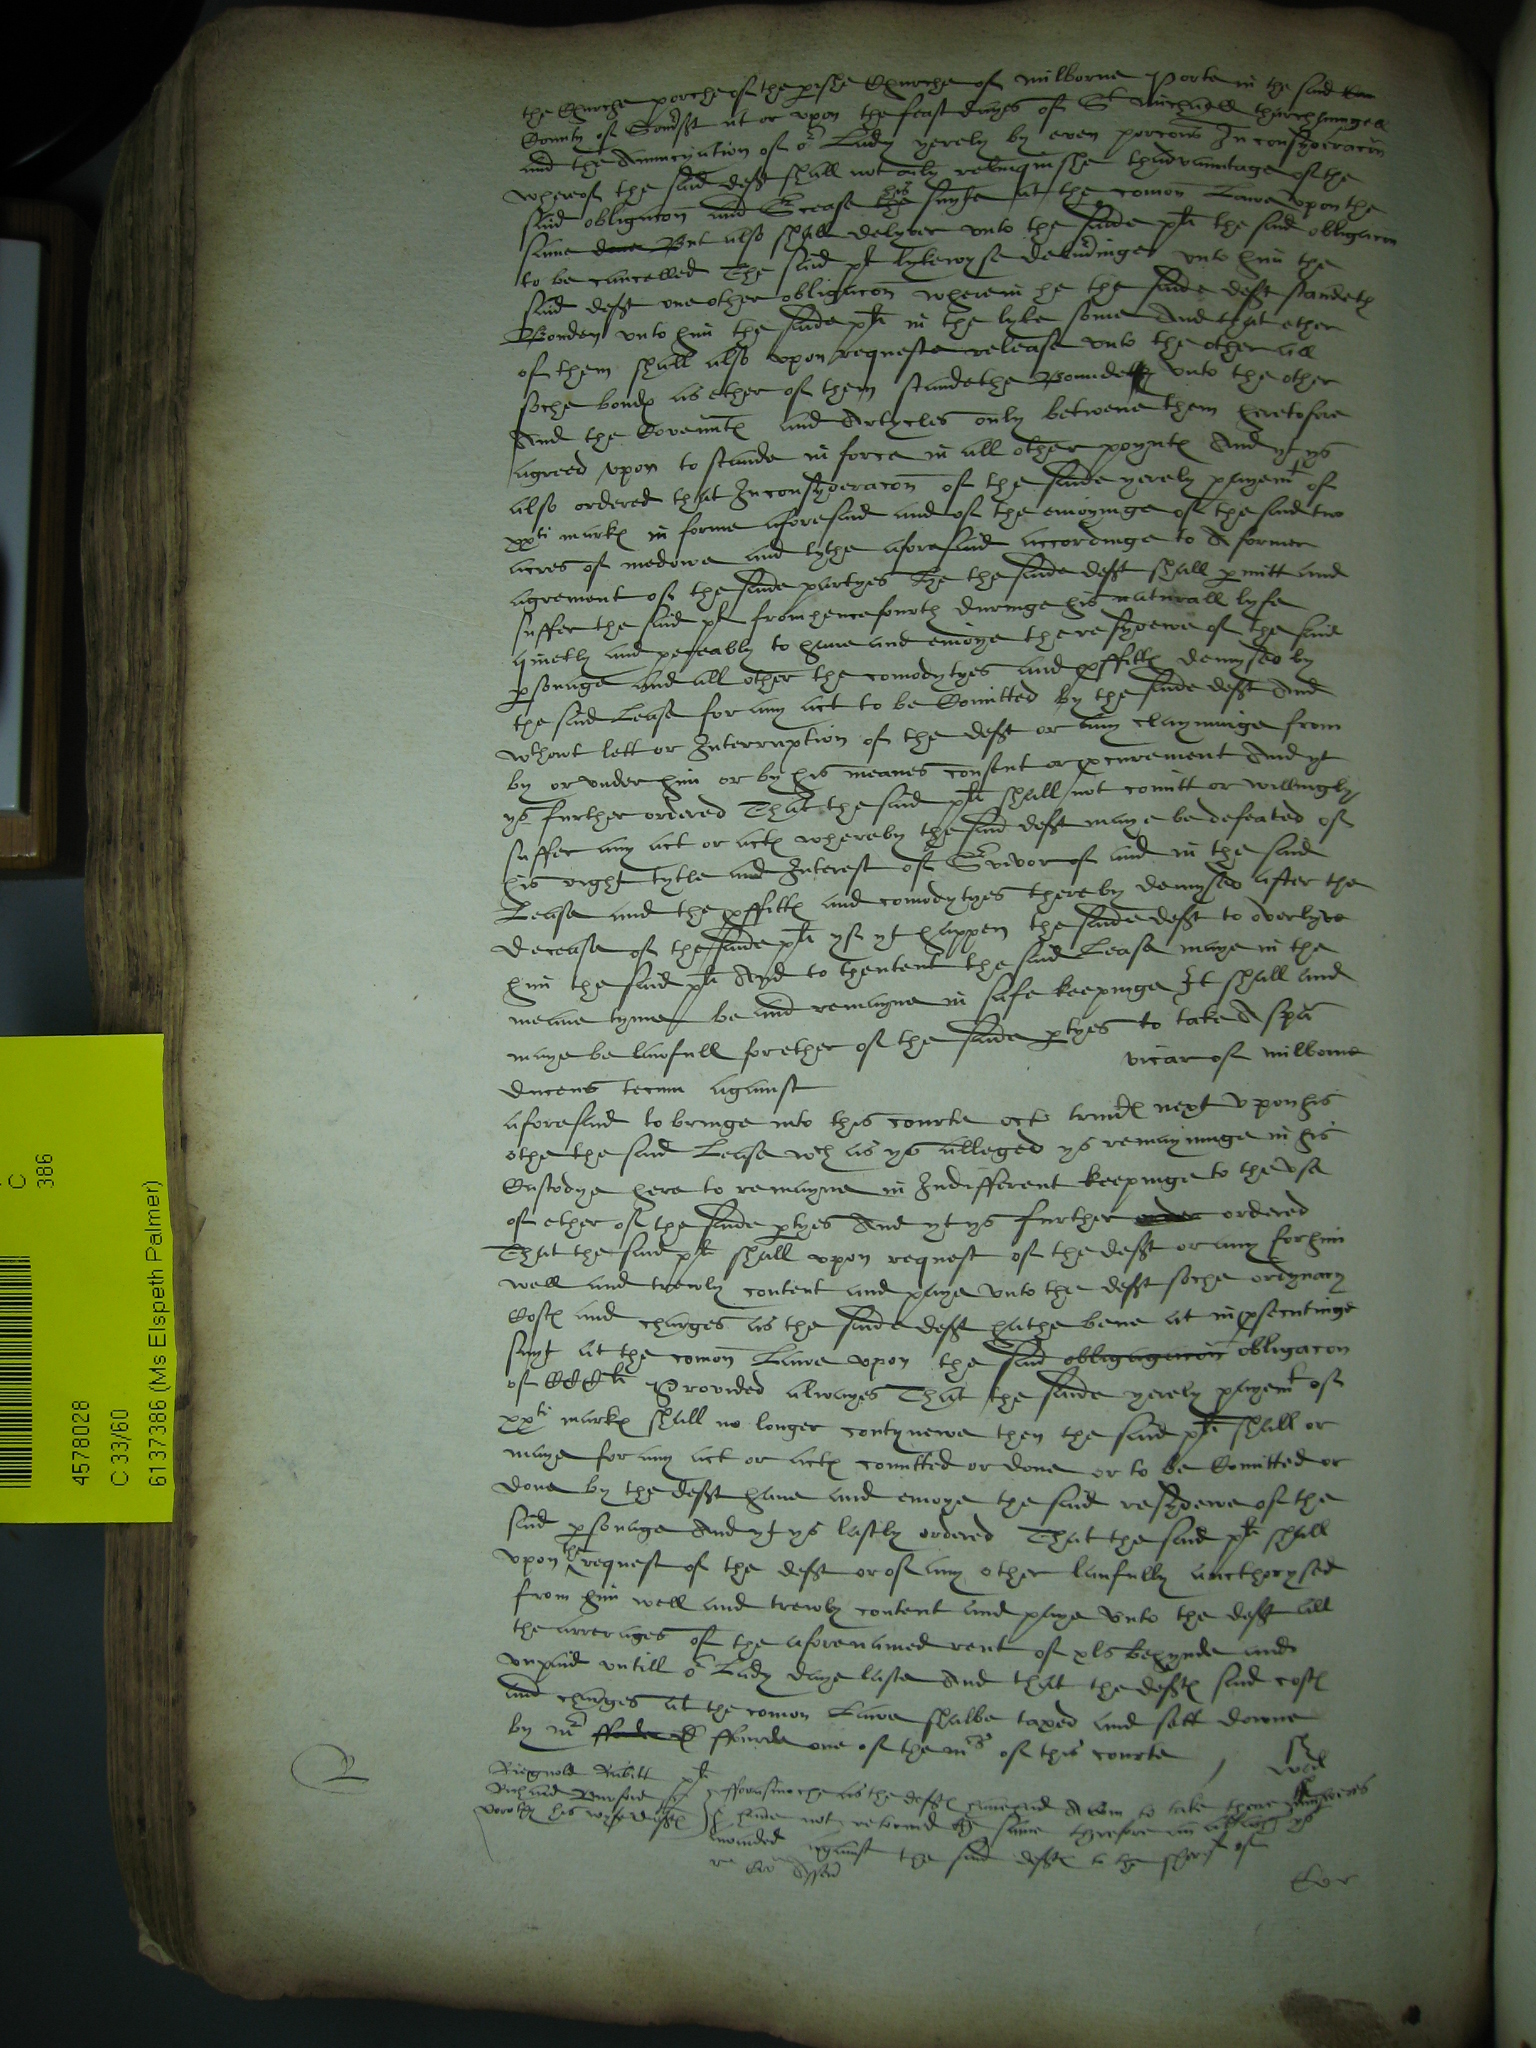 the Churche porche of the pishe Churche of milborne Porte in the said
County of Somst at or upon the feast dayes of St Michaell tharchaungell
and the Annuncyation of or Lady yerely by even porcons In consyderacon
whereof the said deft shall not only relinquishe thadvauntage of the
said obligacon and Surcease the his suyte at the comon Lawe upon the
same done But also shall delyver unto the saide plt the said obligacon
to be cancelled The said plt lykewyse delyveringe unto him the
said deft one other obligacon wherein he the saide deft standeth
Bonden unto him the saide plt in the lyke some And that ether
of them shall also upon requeste release unto the other all
soche bondes as ether of them standethe Bounde unto the other
And the Covenntes and Artycles only betwene them heretofore
agreed upon to stande in force in all other poyntes And yt ys
also ordered that In consyderacon of the saide yerely payemt of
xxti markes in forme aforesaid and of the enioyinge of the said two
acres of medowe and tythe aforesaid accordinge to A former
agrement of the saide partyes He the saide deft shall pmitt and
suffer the said plt from hencefourth duringe his naturall lyfe
quietly and peseably to have and enioye the resydewe of the said
psonage and all other the comodytyes and pffittes demysed by
the said Lease for any act to be Comitted by the saide deft And
wthout lett or Interruption of the deft or any clayminge from
by or under him or by his meanes consent or pcurement And yt
ys further ordered That the said plt shall not comitt or willingly
suffer any act or actes whereby the said deft maye be defeated of
his right tytle and Interest of Survivor of and in the said
Lease and the pffittes and comodytyes thereby demysed after the
decease of the saide plt yf yt happen the saide deft to overlyve
him the said plt And to thentent the said Lease maye in the
meane tyme be and remayne in safe keepinge It shall and
maye be lawfull for ether of the saide ptyes to take A spa
ducens tecum against vicar of milborne
aforesaid to bringe into this courte oct trinitatis next upon his
othe the said Lease wch as ys alleged ys remayninge in his
Custodye here to remayne in Indifferent keepinge to the use
of ether of the saide ptyes And yt ys further order ordered
That the said plt shall upon request of the deft or any for him
well and trewly content and paye unto the deft soche ordynary
Costes and charges as the saide deft hathe bene at in psecutinge
suyt at the comon Lawe upon the said obligagacon obligacon
of CCCli Provided alwayes That the saide yerely payemt of
xxti markes shall no longer contynewe then the said plt shall or
maye for any act or actes comitted or done or to be Comitted or
done by the deft have and enioye the said resydewe of the
said psonage And yt ys lastly ordered That the said plt shall
upon the request of the deft or of any other laufully aucthorysed
from him well and trewly content and paye unto the deft all
the arrerages of the aforenamed rent of xls behynde and
unpaid untill or Lady daye laste And that the deftes said costes
and charges at the comon Lawe shalbe taxed and sett downe
by mr ffourde one of the mrs of this courte
plt fforasmoche as the deftes have had A com to take there answers
Richard his wyfe deftes have not retorned the same therefore an attachmt ys
awarded against the said deftes to the sheref of